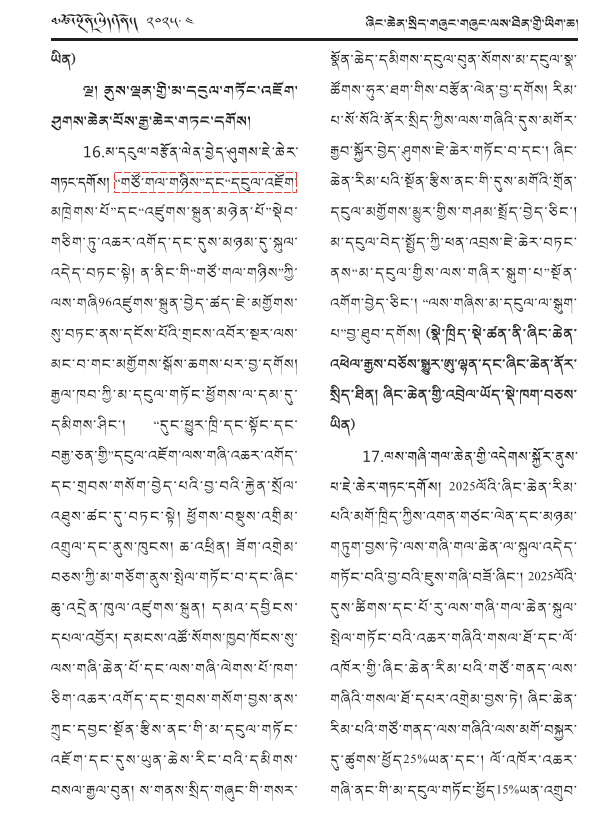 ༢༠༢༥.༤
ཞིང་ཆེན་སྲིད་གཞུང་གཞུང་ལས་ཐིན་གྱི་ཡིག་ཆ།
ཡིན)
ལྔ། ནུས་ལྡན་གྱི་མ་དངུལ་གཏོང་འཇོག་
ཤུགས་ཆེན་པོས་རྒྱ་ཆེར་གཏང་དགོས།
16.མ་དངུལ་བརྩོན་ལེན་བྱེད་ཤུགས་ཇེ་ཆེར་
གཏང་དགོས། “གཙོ་གལ་གཉིས”དང“དངུལ་འཇོག
མཁྲེགས་པོ”དང“འཛུགས་སྐྲུན་མཉེན་པོ”སྡེབ་
གཅིག་ཏུ་འཆར་འགོད་དང་དུས་མཉམ་དུ་སྐུལ་
འདེད་བཏང་སྟེ། ན་ནིང་གི“གཙོ་གལ་གཉིས”ཀྱི་
ལས་གཞི96འཛུགས་སྐྲུན་བྱེད་ཚད་ཇེ་མགྱོགས་
སུ་བཏང་ནས་དངོས་པོའི་གྲངས་འབོར་སྔར་ལས་
མང་བ་གང་མགྱོགས་སྒོས་ཆགས་པར་བྱ་དགོས།
རྒྱལ་ཁབ་ཀྱི་མ་དངུལ་གཏོང་ཕྱོགས་ལ་དམ་དུ་
དམིགས་ཤིང་། “དུང་ཕྱུར་ཁྲི་དང་སྟོང་དང་
བརྒྱ་ཅན་གྱི”དངུལ་འཇོག་ལས་གཞི་འཆར་འགོད་
དང་གྲབས་གསོག་བྱེད་པའི་བྱ་བའི་རྐྱེན་སྲོལ་
འཐུས་ཚང་དུ་བཏང་སྟེ། ཕྱོགས་བསྡུས་འགྲིམ་
འགྲུལ་དང་ནུས་ཁུངས། ཆ་འཕྲིན། ཟོག་འགྲེམ་
བཅས་ཀྱི་མ་གཅོག་ནུས་སྤེལ་གཏོང་བ་དང་ཞིང་
ཆུ་འདྲེན་ཁུལ་འཛུགས་སྐྲུན། དམའ་དབྱིངས་
དཔལ་འབྱོར། དམངས་འཚོ་སོགས་ཁྱབ་ཁོངས་སུ་
ལས་གཞི་ཆེན་པོ་དང་ལས་གཞི་ལེགས་པོ་ཁག་
ཅིག་འཆར་འགོད་དང་གྲབས་གསོག་བྱས་ནས་
ཀྲུང་དབྱང་སྔོན་རྩིས་ནང་གི་མ་དངུལ་གཏོང་
འཇོག་དང་དུས་ཡུན་ཆེས་རིང་བའི་དམིགས་
བསལ་རྒྱལ་བུན། ས་གནས་སྲིད་གཞུང་གི་གསར་
སྣོན་ཆེད་དམིགས་དངུལ་བུན་སོགས་མ་དངུལ་སྣ་
ཚོགས་ཧུར་ཐག་གིས་བརྩོན་ལེན་བྱ་དགོས། རིམ་
པ་སོ་སོའི་ནོར་སྲིད་ཀྱིས་ལས་གཞིའི་དུས་མགོར་
རྒྱབ་སྐྱོར་བྱེད་ཤུགས་ཇེ་ཆེར་གཏོང་བ་དང་། ཞིང་
ཆེན་རིམ་པའི་སྔོན་རྩིས་ནང་གི་དུས་མགོའི་གྲོན་
དངུལ་མགྱོགས་མྱུར་གྱིས་གཤམ་སྤྲོད་བྱེད་ཅིང་།
མ་དངུལ་བེད་སྤྱོད་ཀྱི་ཕན་འབྲས་ཇེ་ཆེར་བཏང་
ནས“མ་དངུལ་གྱིས་ལས་གཞིར་སྒུག་པ”སྔོན་
འགོག་བྱེད་ཅིང་། “ལས་གཞིས་མ་དངུལ་ལ་སྒུག་
པ”བྱ་ཐུབ་དགོས། (སྣེ་ཁྲིད་སྡེ་ཚན་ནི་ཞིང་ཆེན་
འཕེལ་རྒྱས་བཅོས་སྒྱུར་ཨུ་ལྷན་དང་ཞིང་ཆེན་ནོར་
སྲིད་ཐིན། ཞིང་ཆེན་གྱི་འབྲེལ་ཡོད་སྡེ་ཁག་བཅས་
ཡིན)
17.ལས་གཞི་གལ་ཆེན་གྱི་འདེགས་སྐྱོར་ནུས་
པ་ཇེ་ཆེར་གཏང་དགོས། 2025ལོའི་ཞིང་ཆེན་རིམ་
པའི་མགོ་ཁྲིད་ཀྱིས་འགན་གཙང་ལེན་དང་མཉམ་
གཏུག་བྱས་ཏེ་ལས་གཞི་གལ་ཆེན་ལ་སྐུལ་འདེད་
གཏོང་བའི་བྱ་བའི་ཇུས་གཞི་བཟོ་ཞིང་། 2025ལོའི་
དུས་ཚིགས་དང་པོ་རུ་ལས་གཞི་གལ་ཆེན་སྐུལ་
སྤེལ་གཏོང་བའི་འཆར་གཞིའི་གསལ་ཐོ་དང་ལོ་
འཁོར་གྱི་ཞིང་ཆེན་རིམ་པའི་གཙོ་གནད་ལས་
གཞིའི་གསལ་ཐོ་དཔར་འགྲེམ་བྱས་ཏེ། ཞིང་ཆེན་
རིམ་པའི་གཙོ་གནད་ལས་གཞིའི་ལས་མགོ་བསྐྱར་
དུ་ཚུགས་ཕྱོད25%ཡན་དང་། ལོ་འཁོར་འཆར་
གཞི་ནང་གི་མ་དངུལ་གཏོང་ཕྱོད15%ཡན་འགྲུབ་